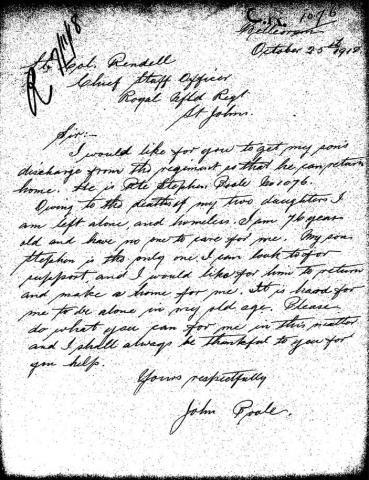 C.R. 1076
October 25th 1918
R 7/11/18
Lt Col. Rendell
Chief Staff Officer
Royal Nfld Regt
St Johns.
Sir:-
I would like for you to get my son's
discharge from the regiment so that he can return
home. He is Pte Stephen Poale No 1076.
Owing to the deaths of my two daughters I
am left alone and homeless. I am 76 years
old and have no one to care for me. My son
Stephen is the only one I can look to for
support and I would like for him to return
and make a home for me. It is hard for
me to be alone in my old age. Please
do what you can for me in this matter
and I shall always be thankful to you for
you help.
Yours respectfully
John Poale.